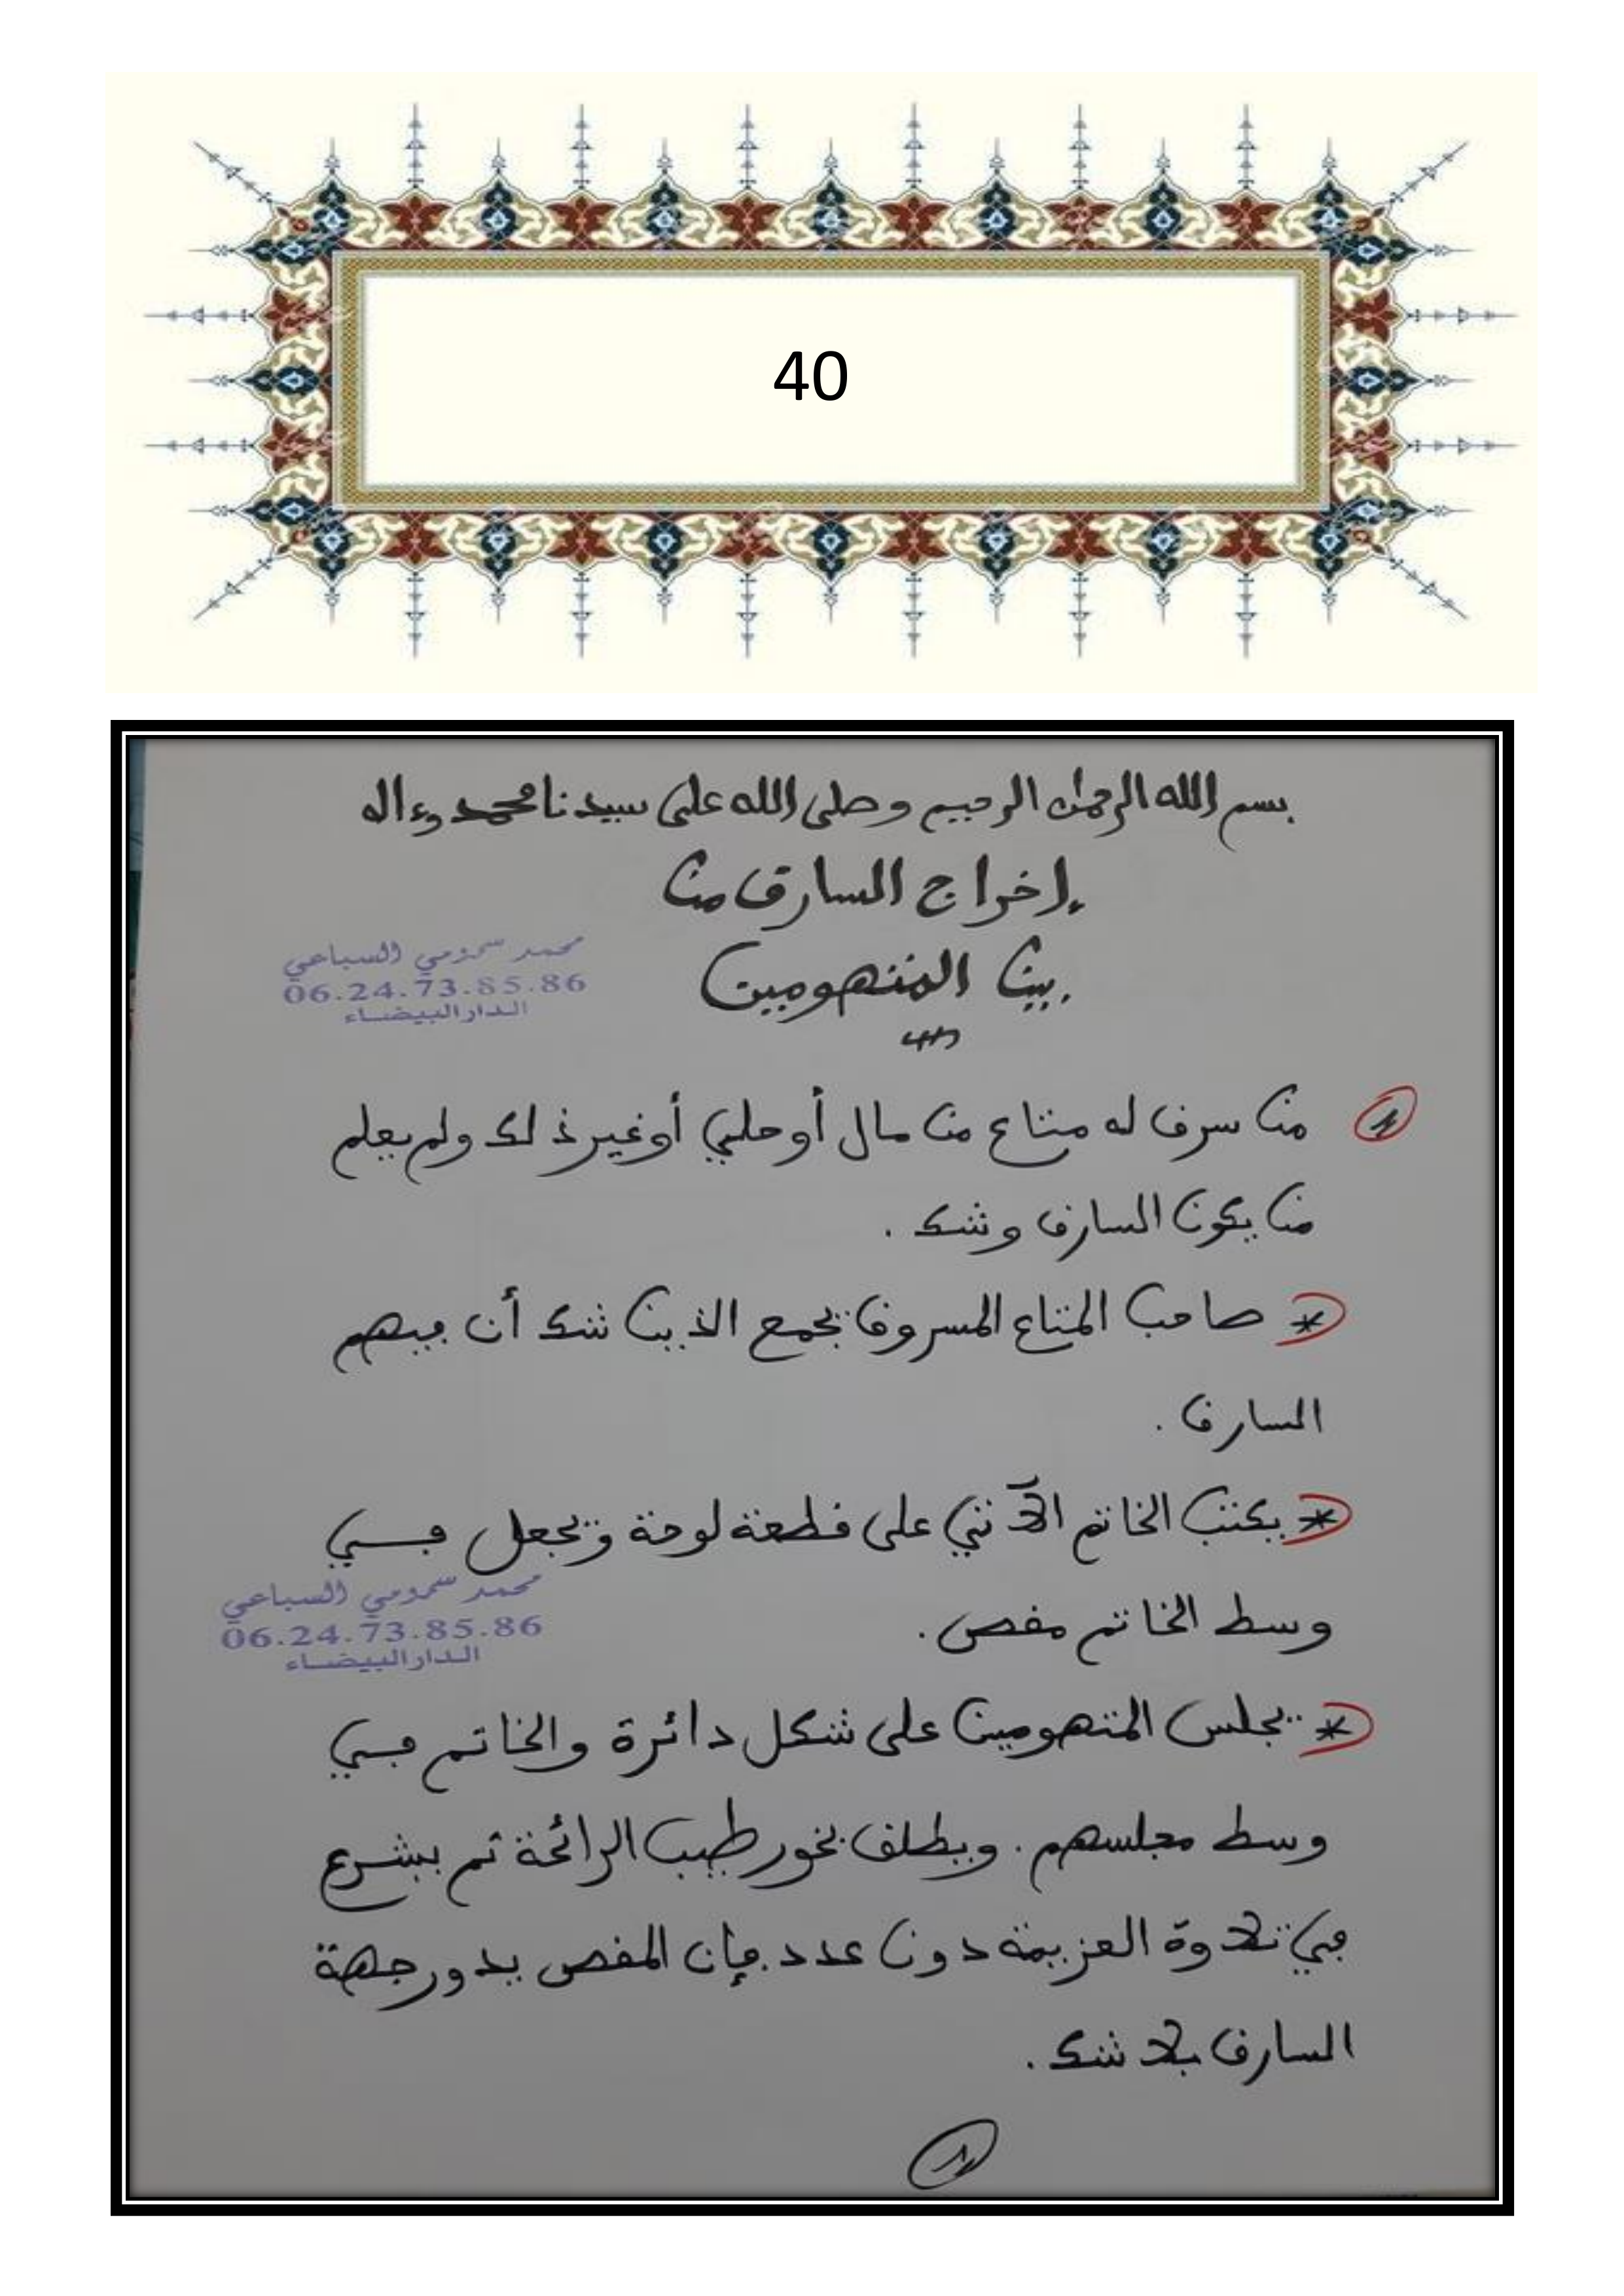 40
بسم الله الرحمان الرحيم وصلى الله على سيدنا محمد وءاله
إخراج السارق من
بين المتهومين
محمد سمومي السباعي
06.24.73.85.86
الدار البيضاء
1 من سرق له متاع من مال أو حلي أو غير ذلك ولم يعلم
من يكون السارق وشك .
* صاحب المتاع المسروق يجمع الذين شك أن فيهم
السارق .
* يكتب الخاتم الآتي على قطعة لوحة ويجعل في
وسط الخاتم مقص .
محمد سمومي السباعي
06.24.73.85.86
الدار البيضاء
* يجلس المتهومين على شكل دائرة والخاتم في
وسط مجلسهم . ويطلق بخور طيب الرائحة ثم يشرع
في تلاوة العزيمة دون عدد . فإن المقص يدور جهة
السارق بلا شك .
1